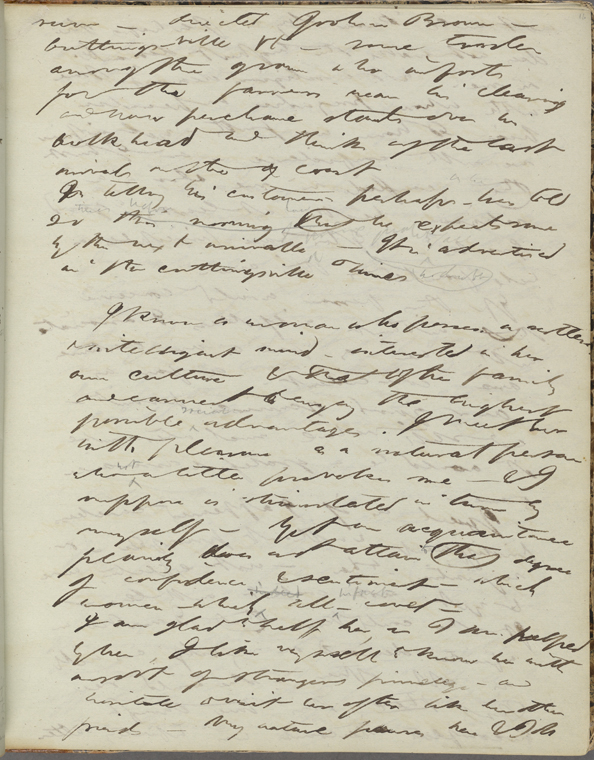 directed John Brown —
Cuttingsville Vt — some trader
among the green who imports
for the farmers near his clearing
and now perchance stands over his
bulkhead and thinks of the last
arrivals on the coast
telling his customers perhaps — has told
20 this morning that he expects some
by the next arrivals — It is advertised
in the Cuttingsville Times

I know a woman who possesses a restless
& intelligent mind — interested in her
own culture & that of the family
and earnest to enjoy the highest
possible advantages. I meet her
with pleasure as a natural person
who a little provokes me — & I
suppose is stimulated in turn by
myself — Yet our acquaintance
plainly does not attain this degree
of confidence & sentiment which
women which all covet —
I am glad to help her, as I am helped
by her, I like very well to know her with
a sort of stranger's privilege — and
hesitate to visit her often like her other
friends — My nature pauses here I do